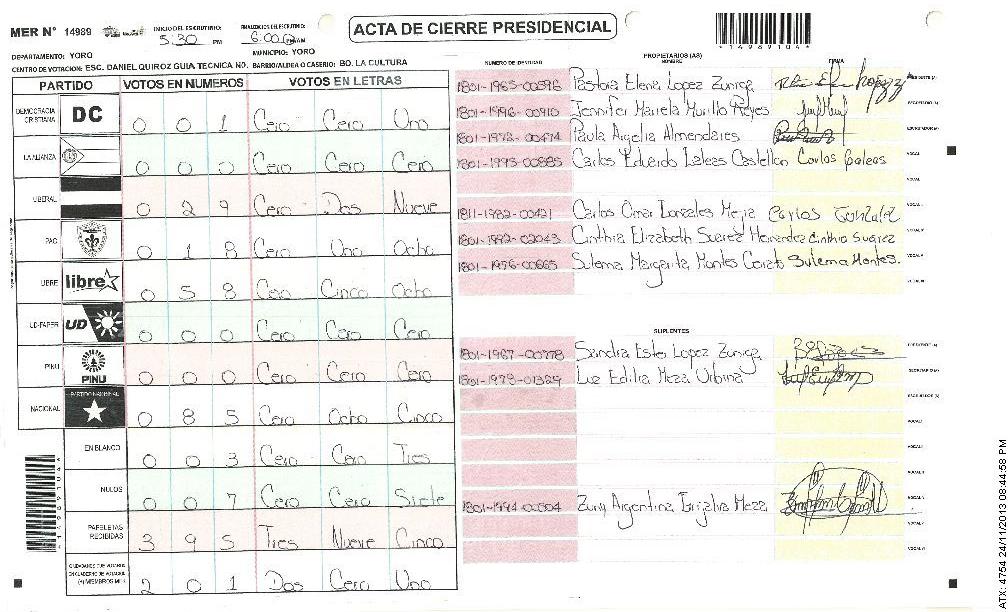 MER N° 14989
INICIO DEL ESCRUTINIO: 5:30 PM
FINALIZACION DEL ESCRUTINIO: 6:00 PM AM
ACTA DE CIERRE PRESIDENCIAL
*14989104*
DEPARTAMENTO: YORO
MUNICIPIO: YORO
CENTRO DE VOTACION: ESC. DANIEL QUIROZ GUIA TECNICA NO. BARRIO/ALDEA O CASERIO: BO. LA CULTURA
PARTIDO VOTOS EN NUMEROS VOTOS EN LETRAS
DEMOCRACIA CRISTIANA DC 0 0 1 Cero Cero Uno
LA ALIANZA 0 0 0 Cero Cero Cero
LIBERAL 0 2 9 Cero Dos Nueve
PAC 0 1 8 Cero Uno Ocho
LIBRE libre 0 5 8 Cero Cinco Ocho
UD-FAPER UD 0 0 0 Cero Cero Cero
PINU PINU 0 0 0 Cero Cero Cero
NACIONAL PARTIDO NACIONAL 0 8 5 Cero Ocho Cinco
EN BLANCO 0 0 3 Cero Cero Tres
NULOS 0 0 7 Cero Cero Siete
PAPELETAS RECIBIDAS 3 9 5 Tres Nueve Cinco
2 0 1 Dos Cero Uno
NUMERO DE IDENTIDAD PROPIETARIOS (AS) NOMBRE FIRMA
1801-1965-00596 Pastora Elena Lopez Zuniga
1801-1996-00910 Jennifer Mariela Murillo Reyes
1801-1972-00474 Paula Argelia Almendares
1801-1993-00885 Carlos Eduardo Galeas Castellon Carlos Galeas
1811-1982-00421 Carlos Omar Gonzales Mejia Carlos Gonzalez
1801-1992-02043 Cinthia Elizabeth Suarez Hernandez Cinthia Suarez
1801-1976-00665 Sulema Margarita Montes Sulema Montes.
SUPLENTES
1801-1967-00778 Sandra Ester Lopez Zuniga
1801-1978-01329 Luz Edilia Meza Urbina
1801-1994-00504 Zury Argentina Grijalva Meza
*14989104*
ATX: 4754 24/11/2013 08:44:58 PM